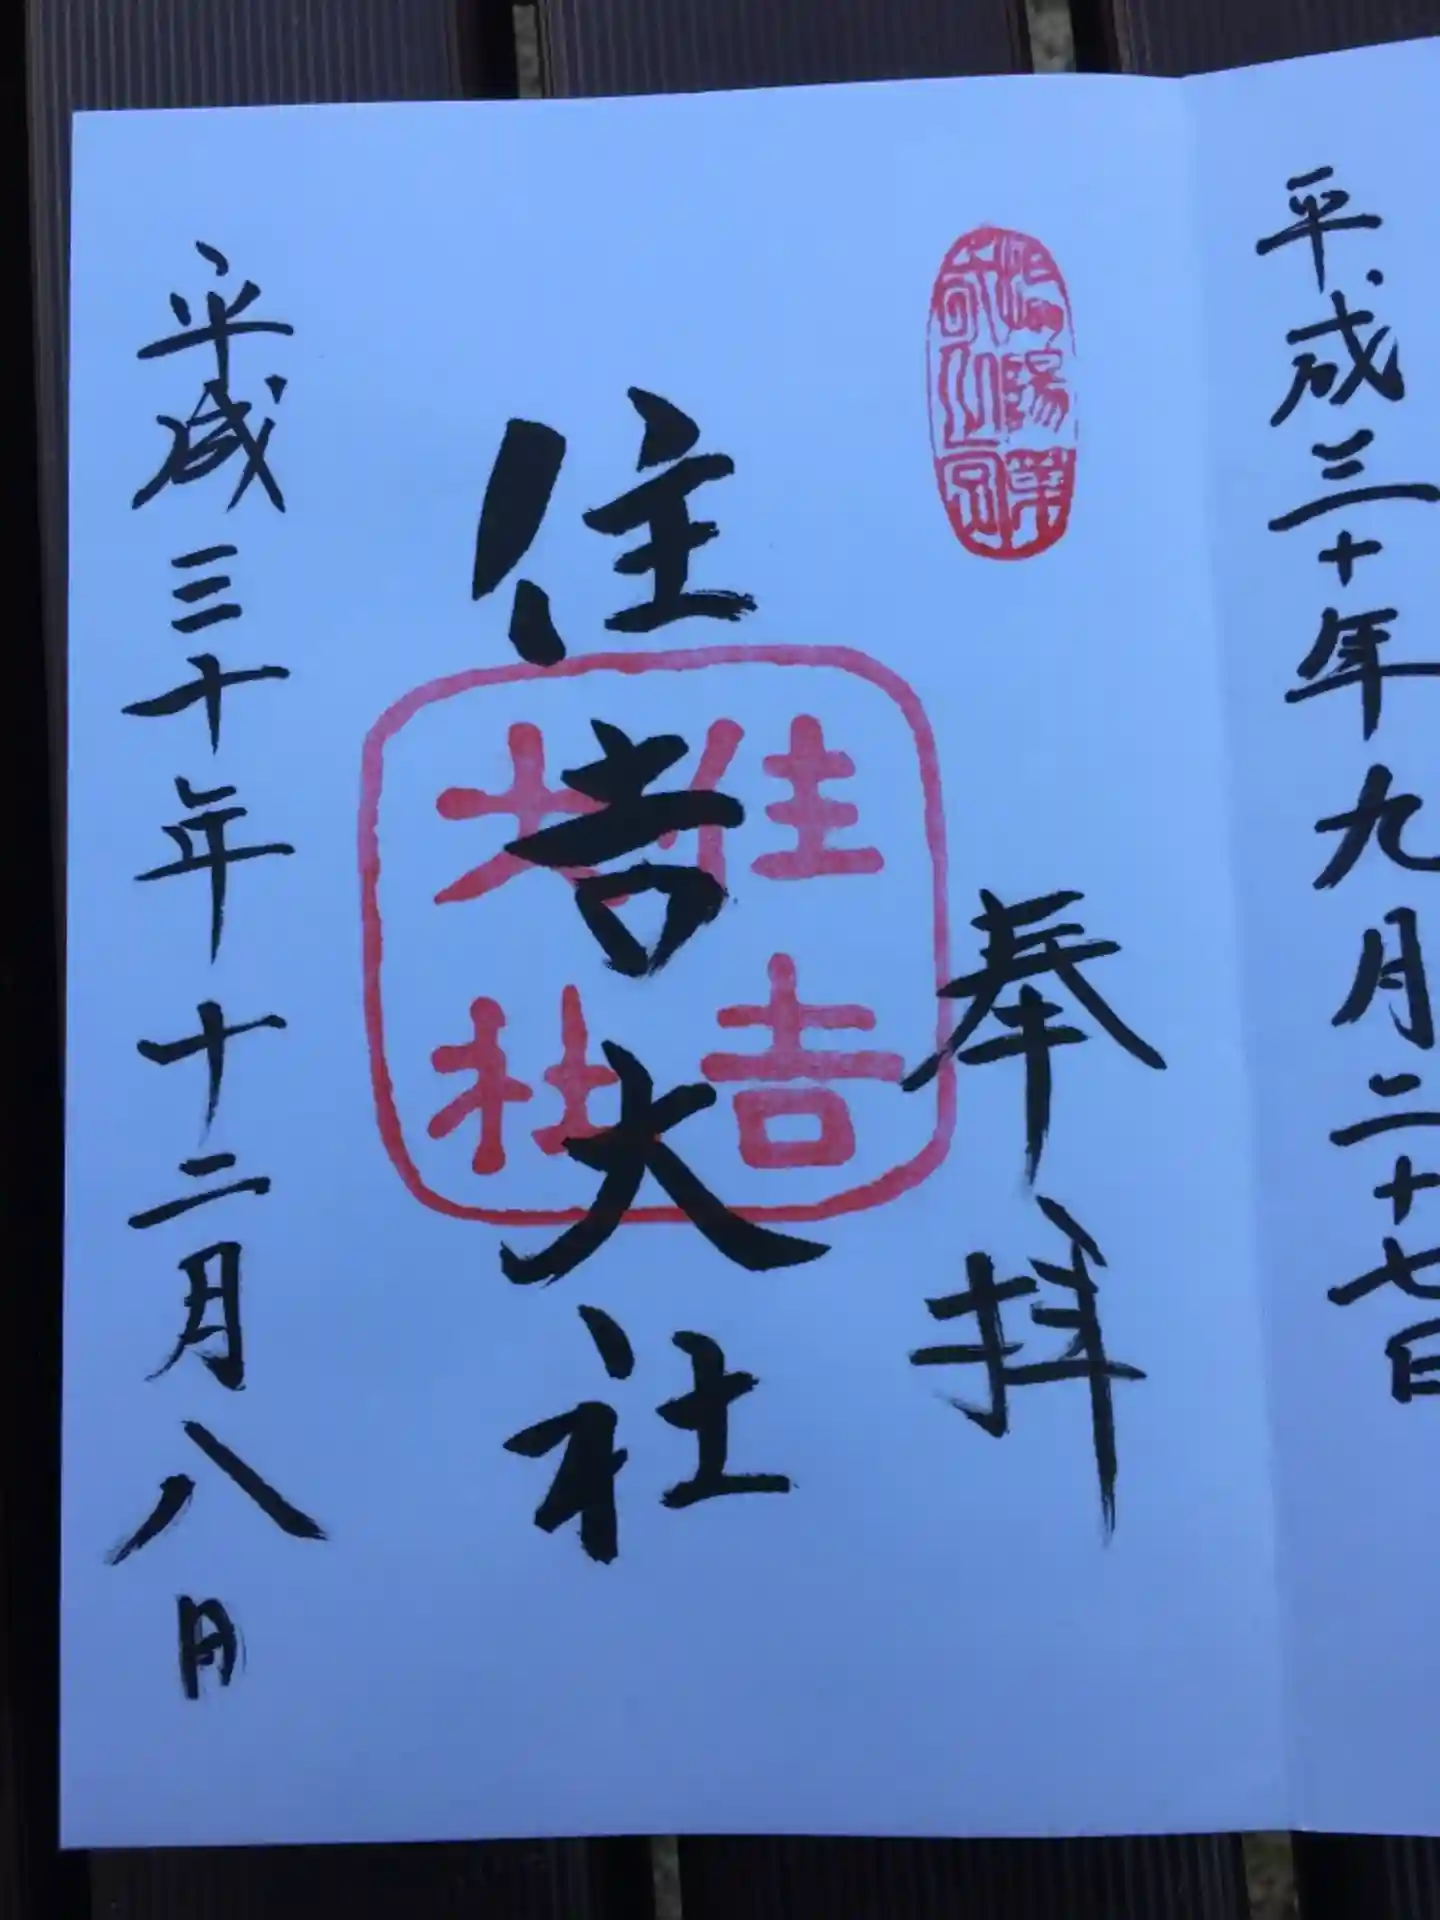 平成三十年九月二十七日
奉拝
住吉大社
住吉
大社
平成三十年十二月八日